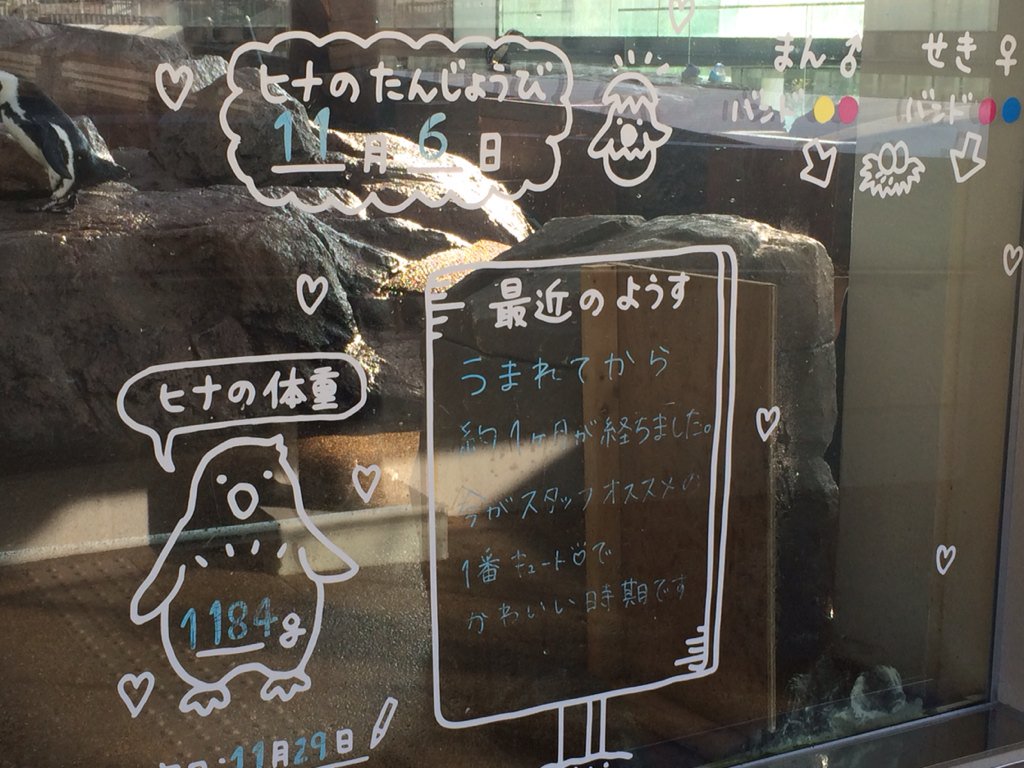 ヒナのたんじょうび
11月6日
まん♂
せき♀
バンド
バンド
最近のようす
うまれてから
約1ヶ月が経ちました。
今がスタッフオススメの
1番キュートで
かわいい時期です
ヒナの体重
1184g
日:11月29日